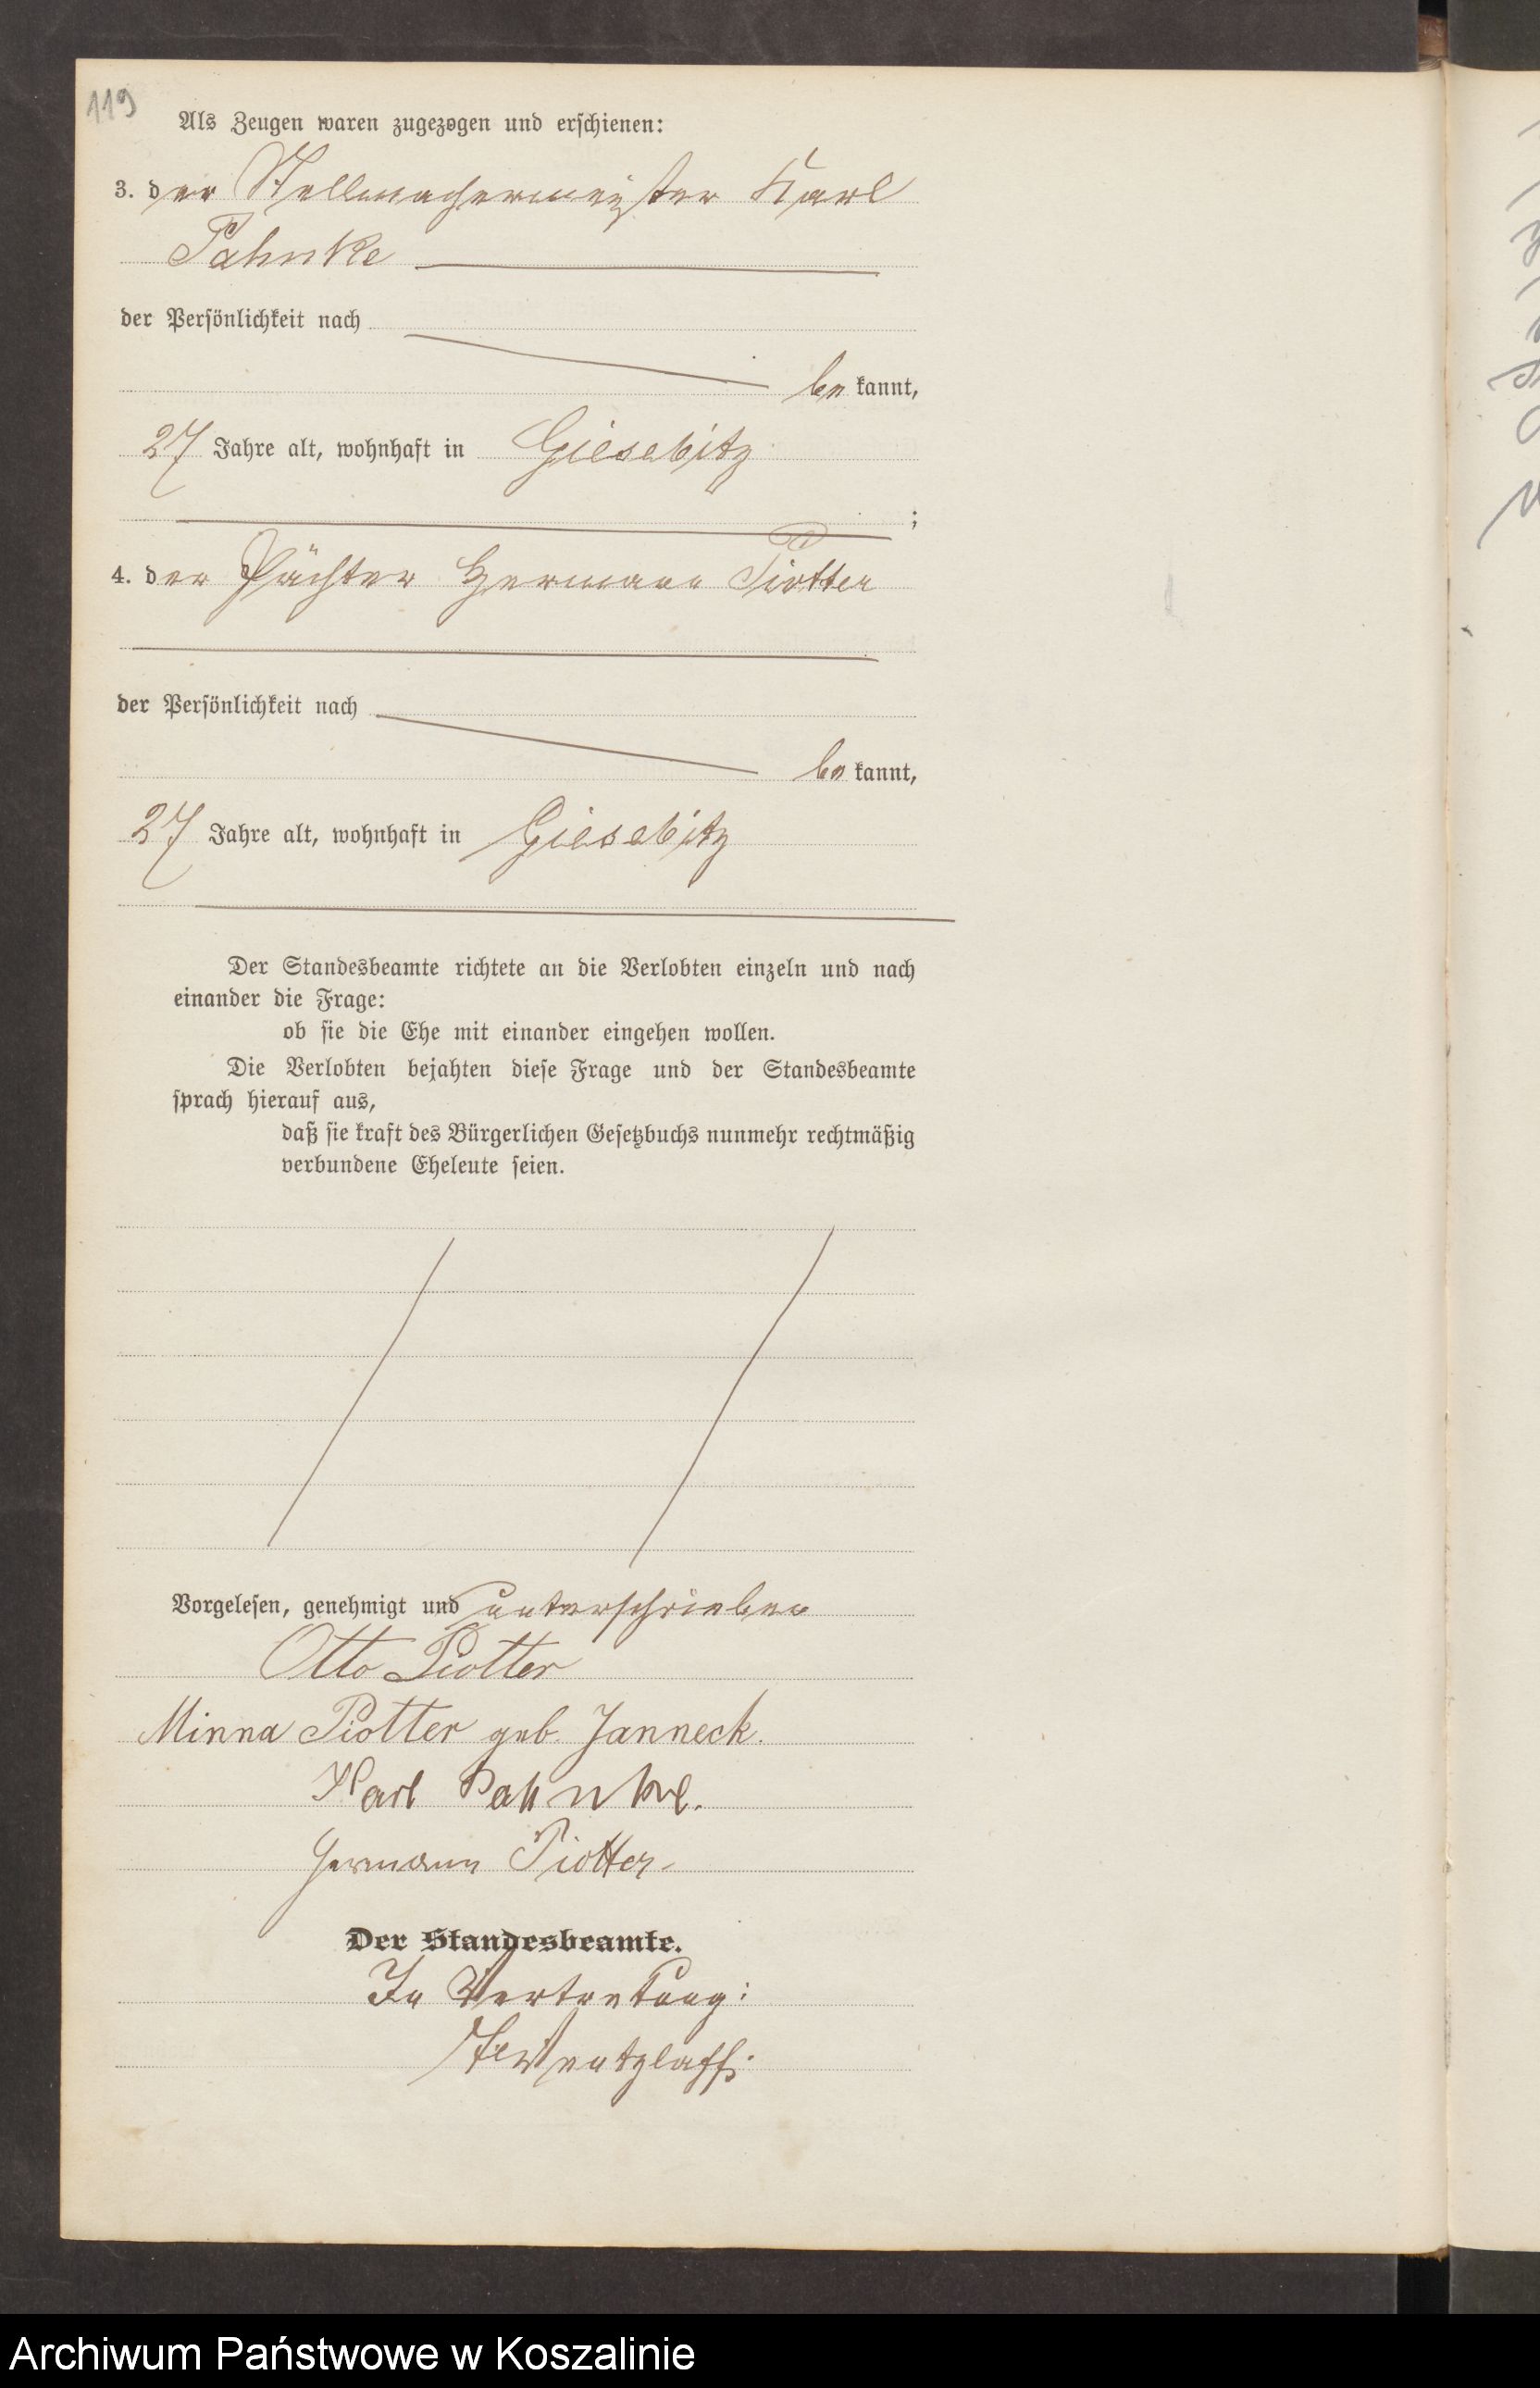 119
Als Zeugen waren zugezogen und erschienen:
3. der Stellmachermeister Karl
Pahnke
der Persönlichkeit nach
be kannt,
27 Jahre alt, wohnhaft in Giesebitz
;
4. der Pächter Hermann Piotter
der Persönlichkeit nach
be kannt,
27 Jahre alt, wohnhaft in Giesebitz
Der Standesbeamte richtete an die Verlobten einzeln und nach
einander die Frage:
ob sie die Ehe mit einander eingehen wollen.
Die Verlobten bejahten diese Frage und der Standesbeamte
sprach hierauf aus,
daß sie kraft des Bürgerlichen Gesetzbuchs nunmehr rechtmäßig
verbundene Eheleute seien.
Vorgelesen, genehmigt und unterschrieben
Otto Piotter
Minna Piotter geb. Janneck.
Karl Pahnke.
Hermann Piotter.
Der Standesbeamte.
In Vertretung:
Wentzlaff.
Archiwum Państwowe w Koszalinie